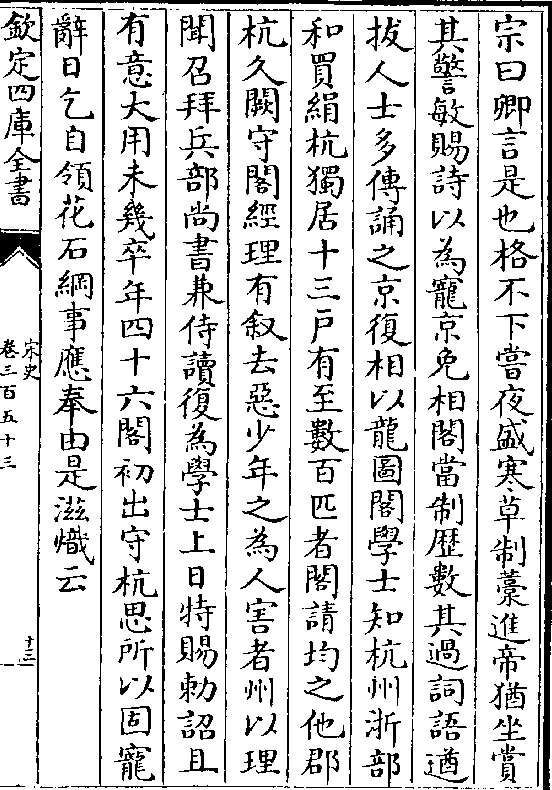 宗曰卿言是也格不下嘗夜盛寒草制藁進帝猶坐賞
其警敏賜詩以為寵京免相閣當制歷數其過詞語遒
拔人士多傳誦之京復相以龍圖閣學士知杭州浙部
和買絹杭獨居十三戶有至數百匹者閣請均之他郡
杭久闕守閣經理有叙去惡少年之為人害者州以理
聞召拜兵部尚書兼侍讀復為學士上日特賜勅詔且
有意大用未幾卒年四十六閣初出守杭思所以固寵
辭日乞自領花石綱事應奉由是滋熾云
欽定四庫全書
宋史
卷三百五十三
十三